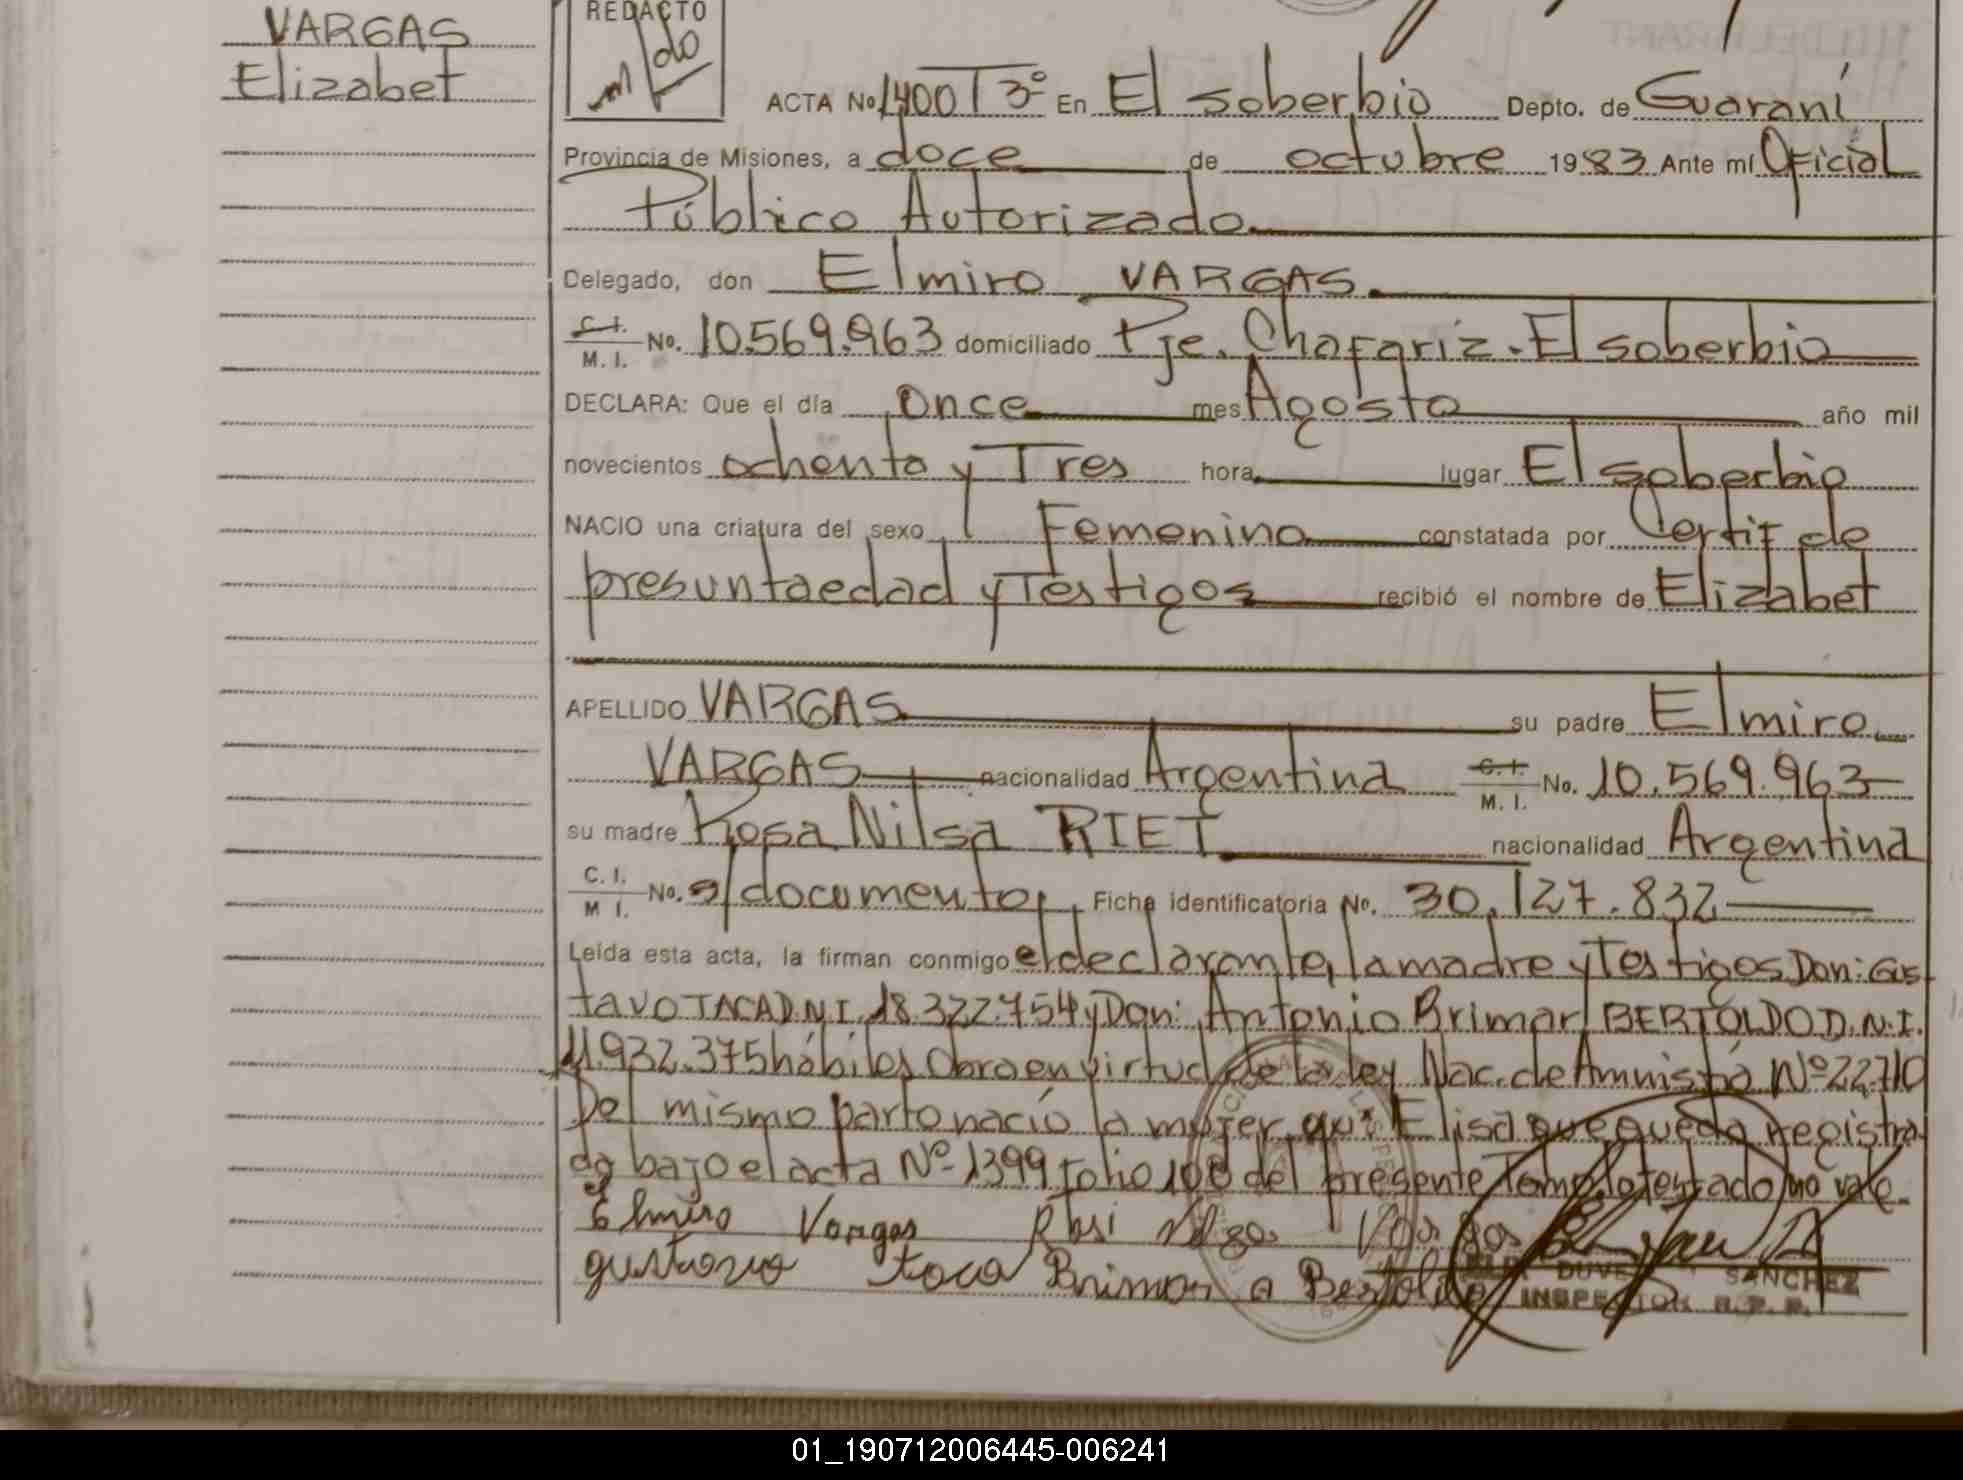 VARGAS
Elizabet
REDACTO
ACTA No 1400 T 3º En El soberbio Depto. de Guaraní
Provincia de Misiones, a doce de octubre 1983 Ante mí Oficial
Público Autorizado
Delegado, don Elmiro VARGAS.
C. I.
M. I. No. 10.569.963 domiciliado Pje. Chafariz - El soberbio
DECLARA: Que el día once mes Agosto año mil
novecientos ochenta y Tres hora lugar El soberbio
NACIO una criatura del sexo Femenino constatada por Certif de
presunta edad y Testigos recibió el nombre de Elizabet
APELLIDO VARGAS su padre Elmiro
VARGAS nacionalidad Argentina C. I. M. I. No. 10.569.963
su madre Rosa Nilsa RIET nacionalidad Argentina
C. I.
M I. No. s/documento, Ficha identificatoria No. 30.127.832
Leída esta acta, la firman conmigo el declarante, la madre y Testigos Don: Gus
tavo TACA D.N.I. 18.322.754 y Don: Antonio Brimar BERTOLDO D.N.I.
11.932.375 hábiles Obra en virtud de la ley Nac. de Amnistía Nº 22.710
Del mismo parto nació la mujer Elisa que queda registra
da bajo el acta Nº 1399 folio 100 del presente Tomo. lo testado no vale.
Elmiro Vargas Vargas
gustavo taca Brimar a Bertoldo
SANCHEZ
INSPECTOR R. P. P.
01_190712006445-006241